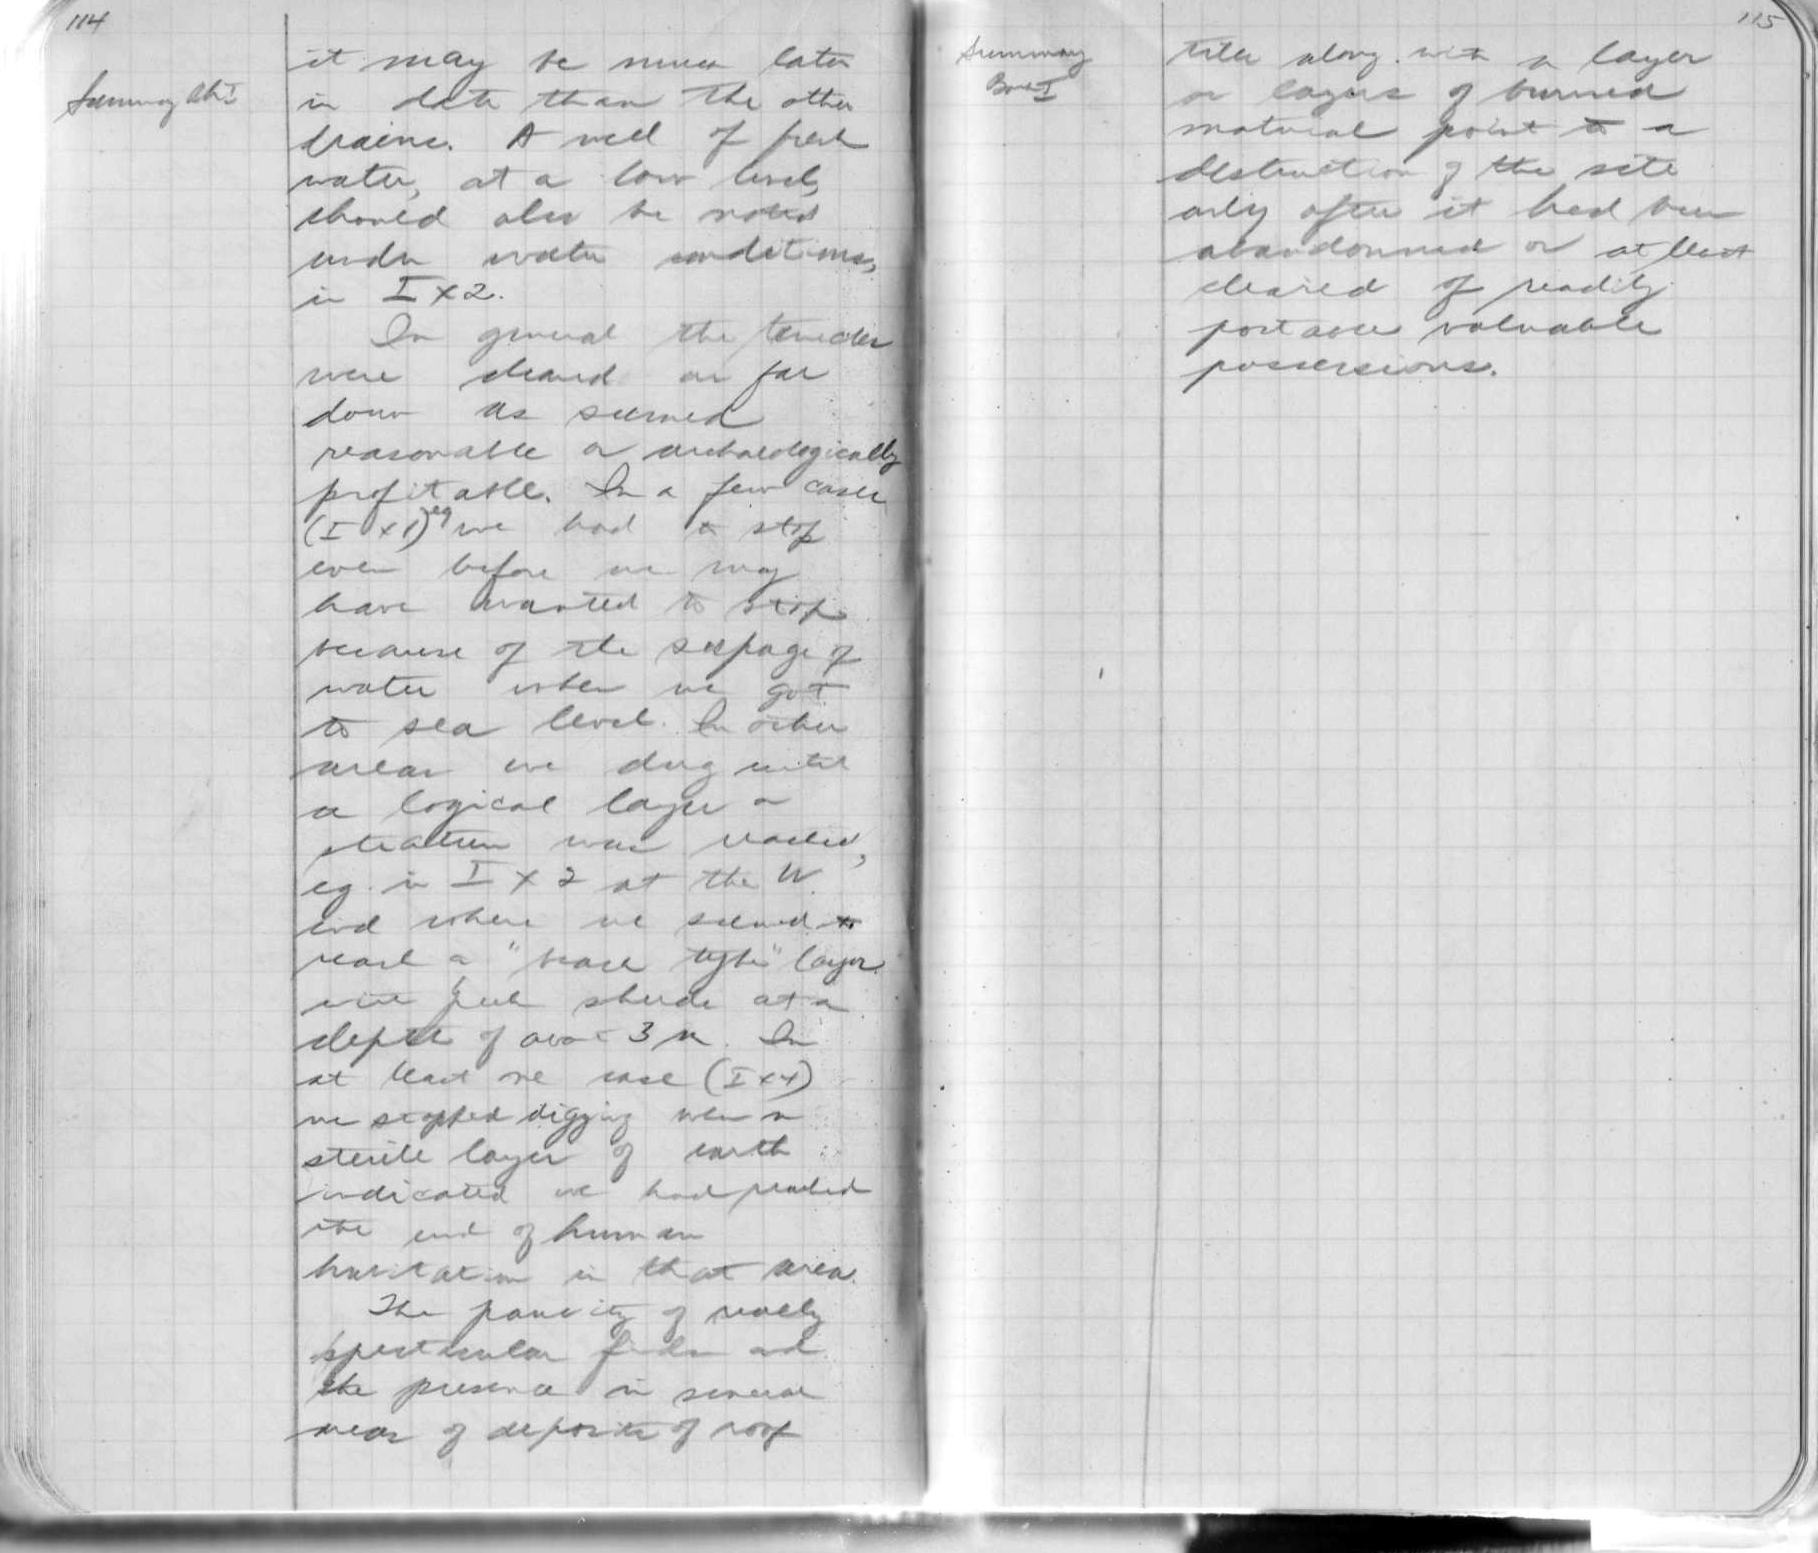 114
Summary
it may be much later
in date than the other
drains. A well of fresh
water, at a low level,
should also be noted
under water conditions,
in I x 2.
In general the trenches
were cleared as far
down as seemed
reasonable or archaeologically
profitable. In a few cases
(I x 1) eg we had to stop
even before we may
have wanted to stop
because of the seepage of
water when we got
to sea level. In other
areas we dug until
a logical layer or
stratum was reached,
eg. in I x 2 at the W.
end where we seemed to
reach a " type" layer
with few sherds at a
depth of about 3 m. In
at least one case (I x 4)
we stopped digging when a
sterile layer of earth
indicated we had reached
the end of human
habitation in that area.
The paucity of really
spectacular finds and
the presence in several
areas of deposits of roof
115
Summary
tiles along with a layer
or layers of burned
material point to a
destruction of the site
only after it had been
abandonned or at least
cleared of readily
portable valuable
possessions.